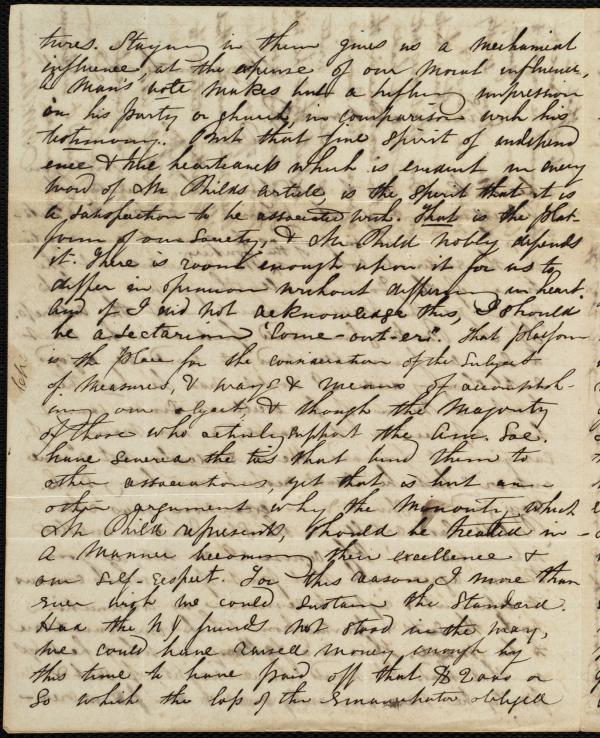 tures. Staying in them gives us a mechanical
influence, at the expense of our moral influence,
a man's vote makes but a trifling impression
on his party or church, in comparison with his
testimony. But that fine spirit of independ
ence & true heartedness which is evident in every
word of Mr Childs article, is the spirit that it is
a satisfaction to be associated with. That is the plat-
form of our Society, & Mr Child nobly defends
it. There is room enough upon it for us to
differ in opinion without differing in heart.
And if I did not acknowledge this, I should
be a sectarian "Come-out-er". That platform
is the place for the consideration of the subject
of measures, & ways & means of accomplish-
ing our object, & though the Majority
of those who actively support the Am. Soc.
have severed the ties that bind them to
other associations, yet that is but an-
other argument why the Minority, which
Mr Child represents, should be treated in
a manner becoming their excellence &
our self-respect. For this reason, I more than
ever wish we could sustain the Standard.
Had the N Y friends not stood in the way,
we could have raised money enough by
this time to have paid off that $2000 or
so which the loss of the Emancipator obliged
164